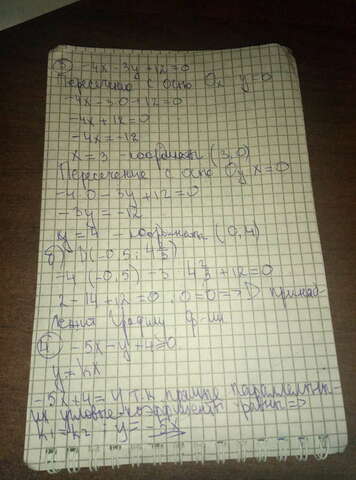 -4x-3y+12=0
Пересечение с осью Ox y=0
-4x-3·0+12=0
-4x+12=0
-4x=-12
x=3 - координаты (3;0)
Пересечение с осью Oy x=0
-4·0-3y+12=0
-3y=-12
y=4 - координаты (0;4)
б) D(-0,5; 4⅔)
-4·(-0,5)-3·4⅔+12=0
2-14+12=0. 0=0=>D принад-
лежит графику ф-ии
-5x-y+4=0
y=kx
-5x+4=y т.к прямые параллельны-
угловые коэффициенты равны=>
k₁=k₂ y=-5x